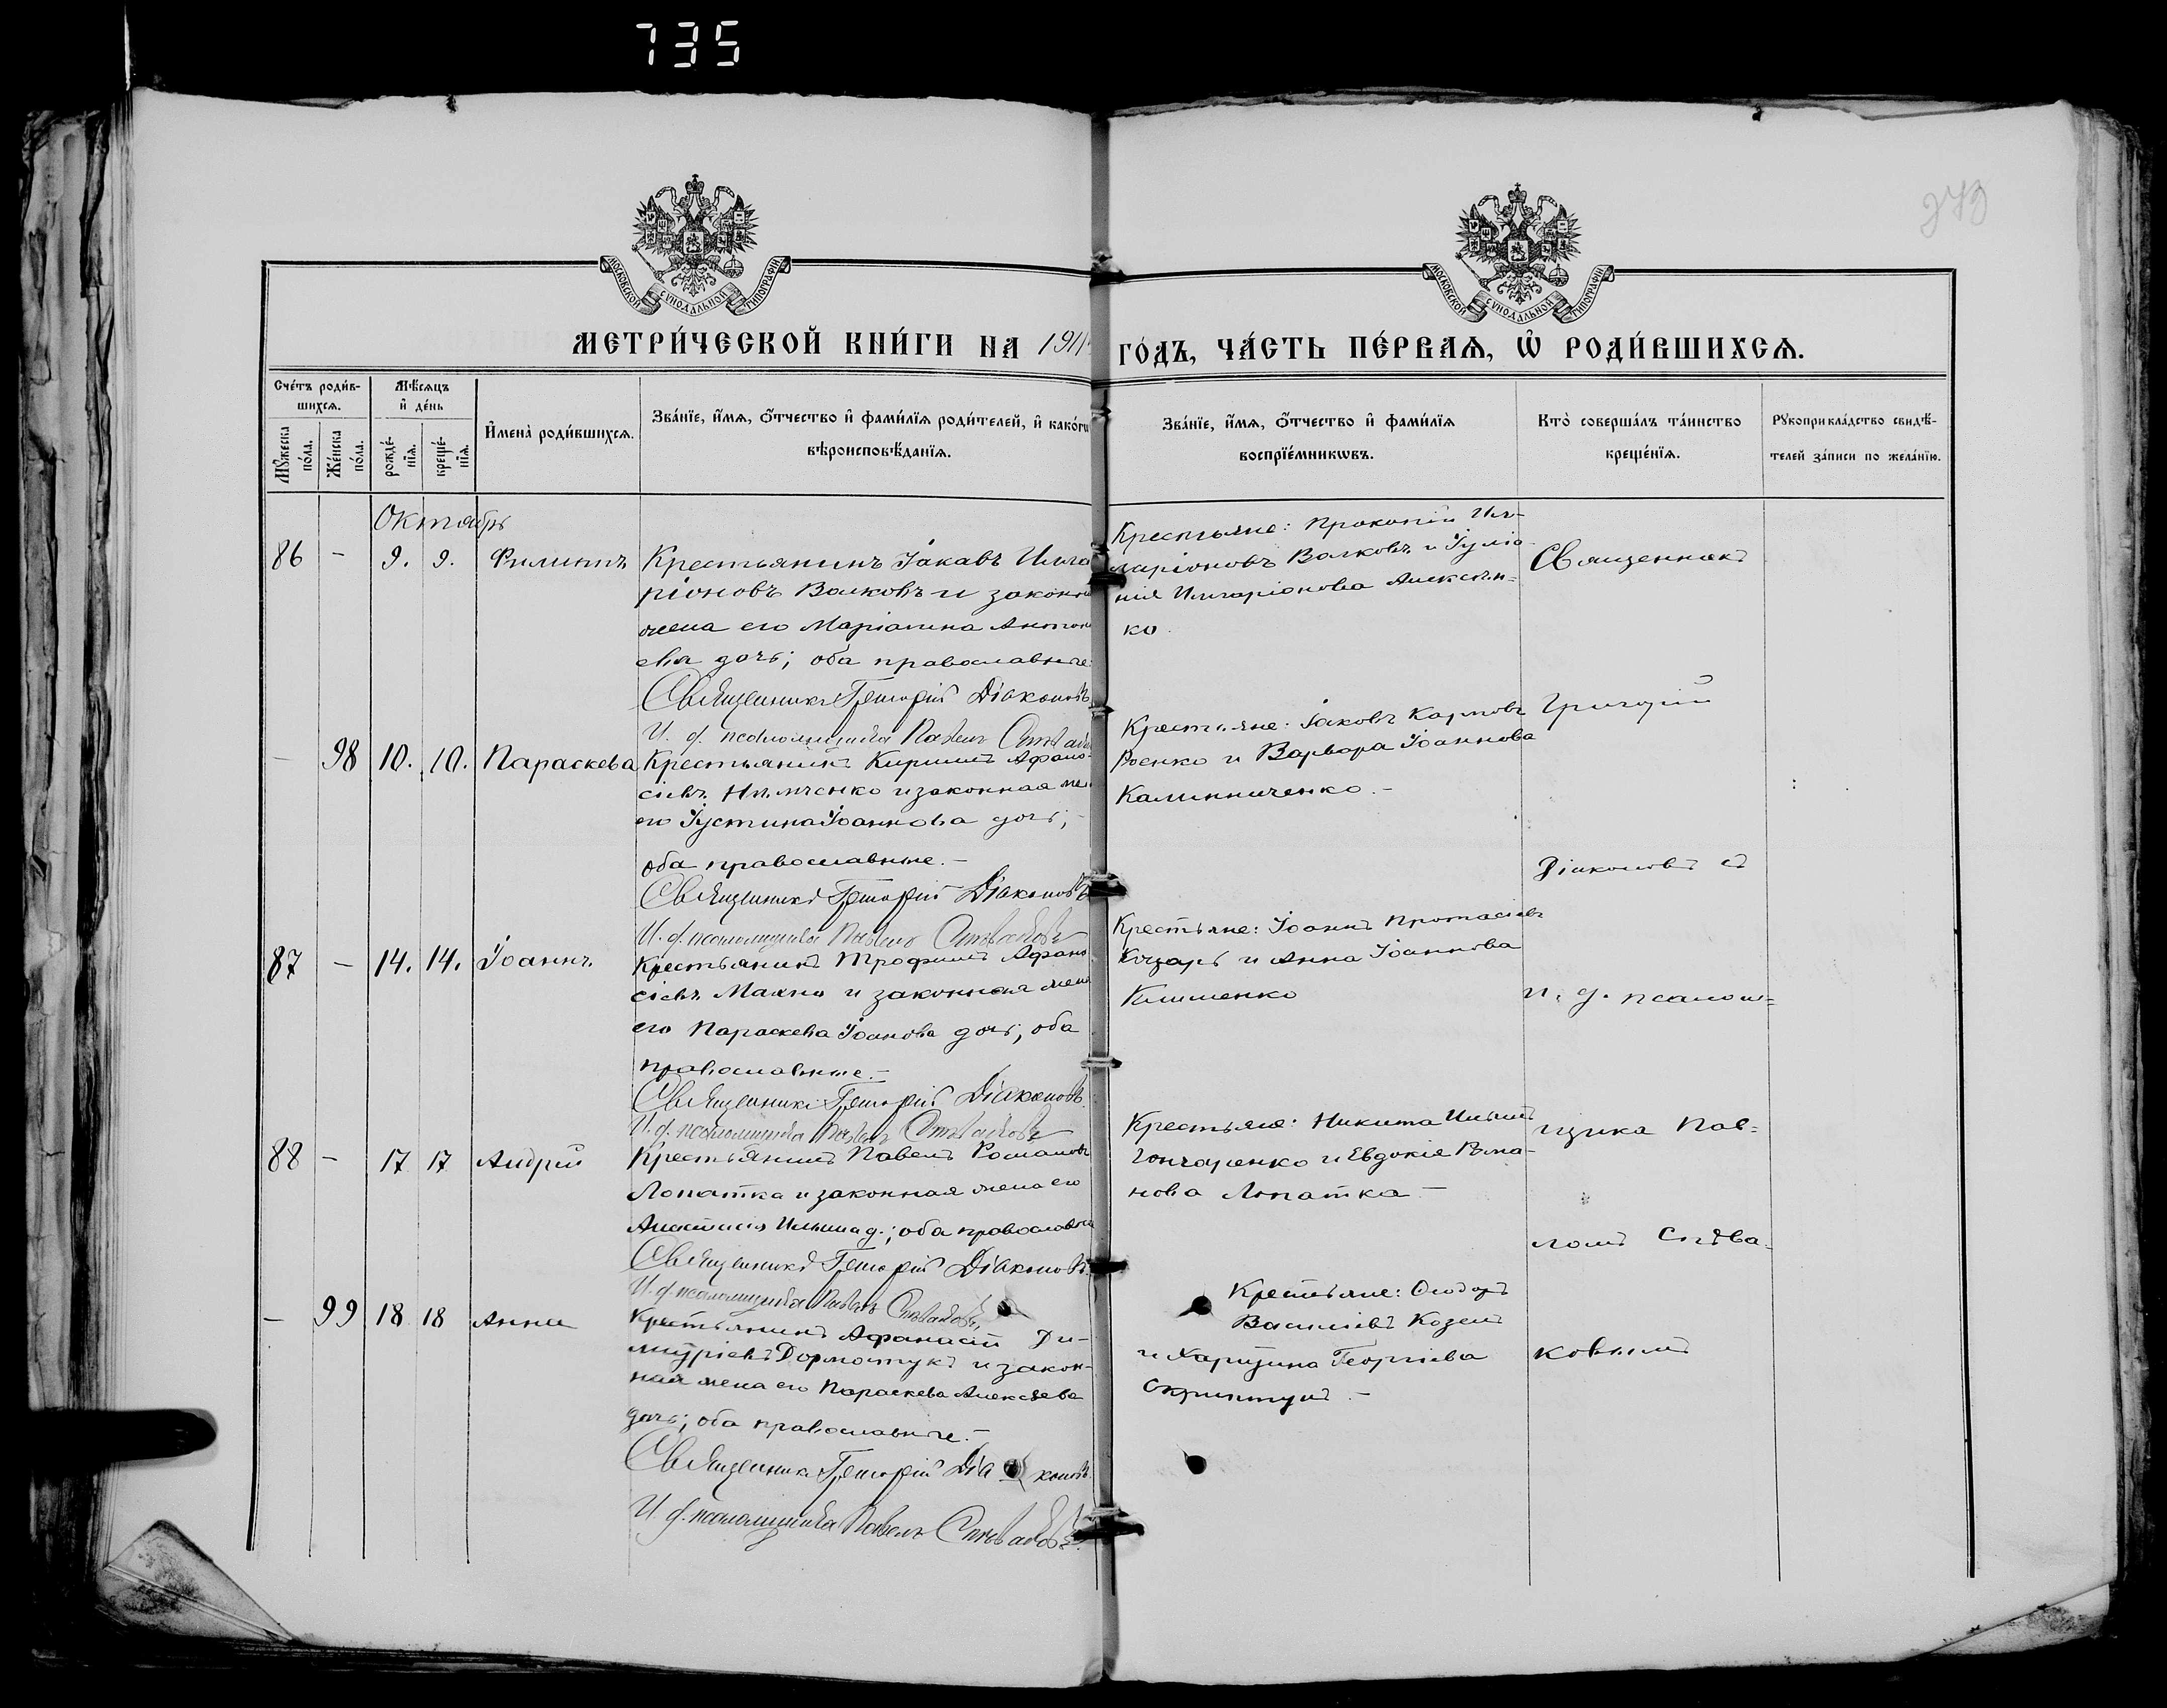 735
273
МОСКОВСКОЙ СѴНОДАЛЬНОЙ ТИПОГРАФІИ
МОСКОВСКОЙ СѴНОДАЛЬНОЙ ТИПОГРАФІИ
МЕТРИ́ЧЕСКОЙ КНИ́ГИ НА 1911 ГО́ДЪ, ЧА́СТЬ ПЕ́РВАѦ, Ѡ҆ РОДИ́ВШИХСѦ.
Сче́тъ роди́в-
шихсѧ.
Мꙋ́жеска по́ла.
Же́нска по́ла.
Мѣ́сѧцъ
и҆ де́нь
рожде́-
нїѧ.
креще́-
нїѧ.
И҆мена̀ роди́вшихсѧ.
Зва́нїе, и҆́мѧ, ѻ҆́тчество и҆ фами́лїѧ роди́телей, и҆ како́гѡ
вѣроисповѣ́данїѧ.
Зва́нїе, и҆́мѧ, ѻ҆́тчество и҆ фами́лїѧ
воспрїе́мникѡвъ.
Кто̀ соверша́лъ та́инство
креще́нїѧ.
Рꙋкоприкла́дство свидѣ́-
телей за́писи по жела́нїю.
Октябрь
86 - 9. 9. Филиппъ
Крестьянинъ Іаковъ Илла
ріоновъ Волковъ и законн
жена его Маріанна Антон
ева дочь; оба православные
Священникъ Григорій Діаконовъ
И. д. псаломщика Павелъ Спѣваковъ
Крестьяне: Прокопій Ил-
ларіоновъ Волковъ и Іуліа-
нія Илларіонова Алексѣн-
ко.
- 98 10. 10. Параскева
Крестьянинъ Кириллъ Афана-
сіевъ и законная же
его Іустина Іоаннова дочь;
оба православные. -
Священникъ Григорій Діаконовъ
И. д. псаломщика Павелъ Спѣваковъ
Крестьяне: Іаковъ Карповъ
и Варвара Іоаннова
Калинниченко. -
87 - 14. 14. Іоаннъ
Крестьянинъ Трофимъ Афана
сіевъ Махно и законная жена
его Параскева Іоанова дочь; оба
православные. -
Священникъ Григорій Діаконовъ
И. д. псаломщика Павелъ Спѣваковъ
Крестьяне: Іоаннъ Протасіевъ
и Анна Іоаннова
Клименко
88 - 17 17 Андрей
Крестьянинъ Павелъ Романовъ
Лопатка и законная жена его
Анастасія Ильина д.; оба православн
Священникъ Григорій Діаконовъ
И. д. псаломщика Павелъ Спѣваковъ
Крестьяне: Никита Ильинъ
Гончаренко и Евдокіе Рома-
нова Лопатка -
- 99 18 18 Анна
Крестьянинъ Афанасій Ди-
митріевъ и закон-
ная жена его Параскева Алексѣева
дочь; оба православные. -
Священникъ Григорій Діаконовъ
И. д. псаломщика Павелъ Спѣваковъ
Крестьяне: Ѳеодоръ
Василіевъ Козелъ
и Харитина Георгіева
Священникъ
Григорій
Діаконовъ съ
и. д. псалом=
щика Пав=
ломъ Спѣва-
ковымъ